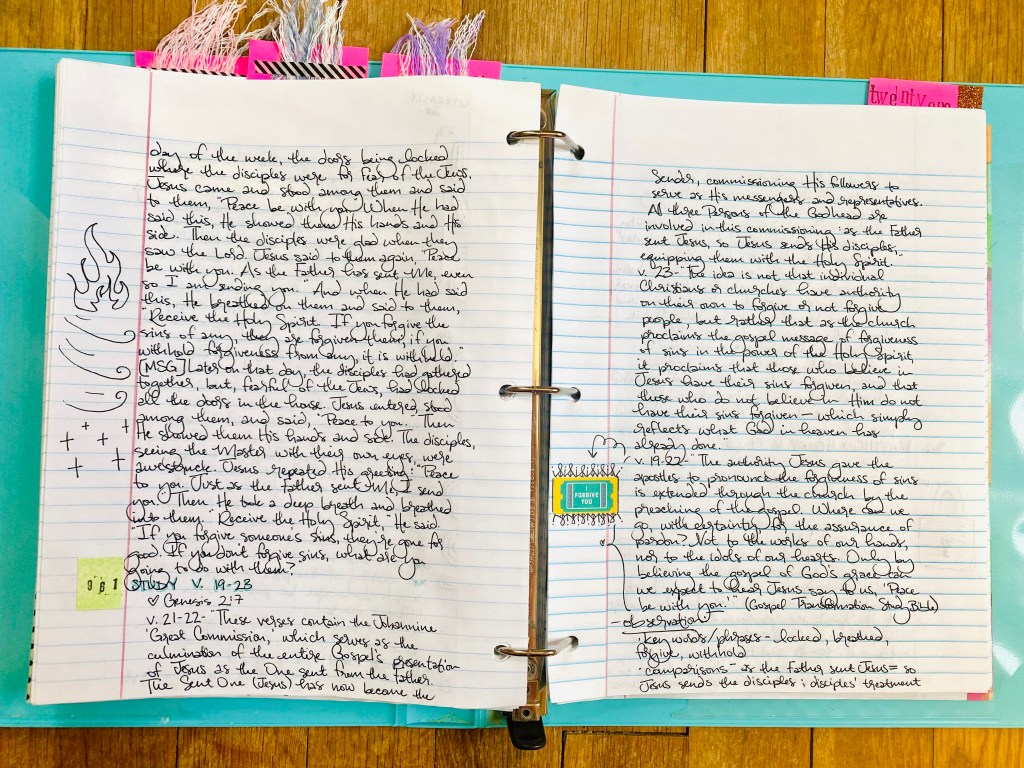 day of the week, the doors being locked
where the disciples were for fear of the Jews,
Jesus came and stood among them and said
to them, "Peace be with you." When He had
said this, He showed them His hands and His
side. Then the disciples were glad when they
saw the Lord. Jesus said to them again, "Peace
be with you. As the Father has sent Me, even
so I am sending you." And when He had said
this, He breathed on them and said to them,
"Receive the Holy Spirit. If you forgive the
sins of any, they are forgiven them; if you
withhold forgiveness from any, it is withheld."
[MSG] Later on that day, the disciples had gathered
together, but, fearful of the Jews, had locked
all the doors in the house. Jesus entered, stood
among them, and said, "Peace to you." Then
He showed them His hands and side. The disciples,
seeing the Master with their own eyes, were
awestruck. Jesus repeated His greeting: "Peace
to you. Just as the Father sent Me, I send
you." Then He took a deep breath and breathed
into them. "Receive the Holy Spirit," He said.
"If you forgive someone's sins, they're gone for
good. If you don't forgive sins, what are you
going to do with them?
981
STUDY V. 19-23
♡ Genesis 2:7
v. 21-22- "These verses contain the Johannine
'Great Commission,' which serves as the
culmination of the entire Gospel's presentation
of Jesus as the One sent from the Father.
The Sent One (Jesus) has now become the
twentyone
Sender, commissioning His followers to
serve as His messengers and representatives.
All three Persons of the Godhead are
involved in this commissioning: as the Father
sent Jesus, so Jesus sends His disciples,
equipping them with the Holy Spirit."
v. 23- "The idea is not that individual
Christians or churches have authority
on their own to forgive or not forgive
people, but rather that as the church
proclaims the gospel message of forgiveness
of sins in the power of the Holy Spirit,
it proclaims that those who believe in
Jesus have their sins forgiven, and that
those who do not believe in Him do not
have their sins forgiven - which simply
reflects what God in heaven has
already done."
v. 19-22- "The authority Jesus gave the
apostles to pronounce the forgiveness of sins
is extended through the church by the
preaching of the gospel. Where can we
go, with certainty, for the assurance of
pardon? Not to the works of our hands,
nor to the idols of our hearts. Only by
believing the gospel of God's grace can
we expect to hear Jesus say to us, 'Peace
be with you.'" (Gospel Transformation Study Bible)
I
FORGIVE
YOU
- observation
· key words/phrases - locked, breathed,
forgive, withhold
· comparisons - as the Father sent Jesus = so
Jesus sends the disciples ; disciples' treatment